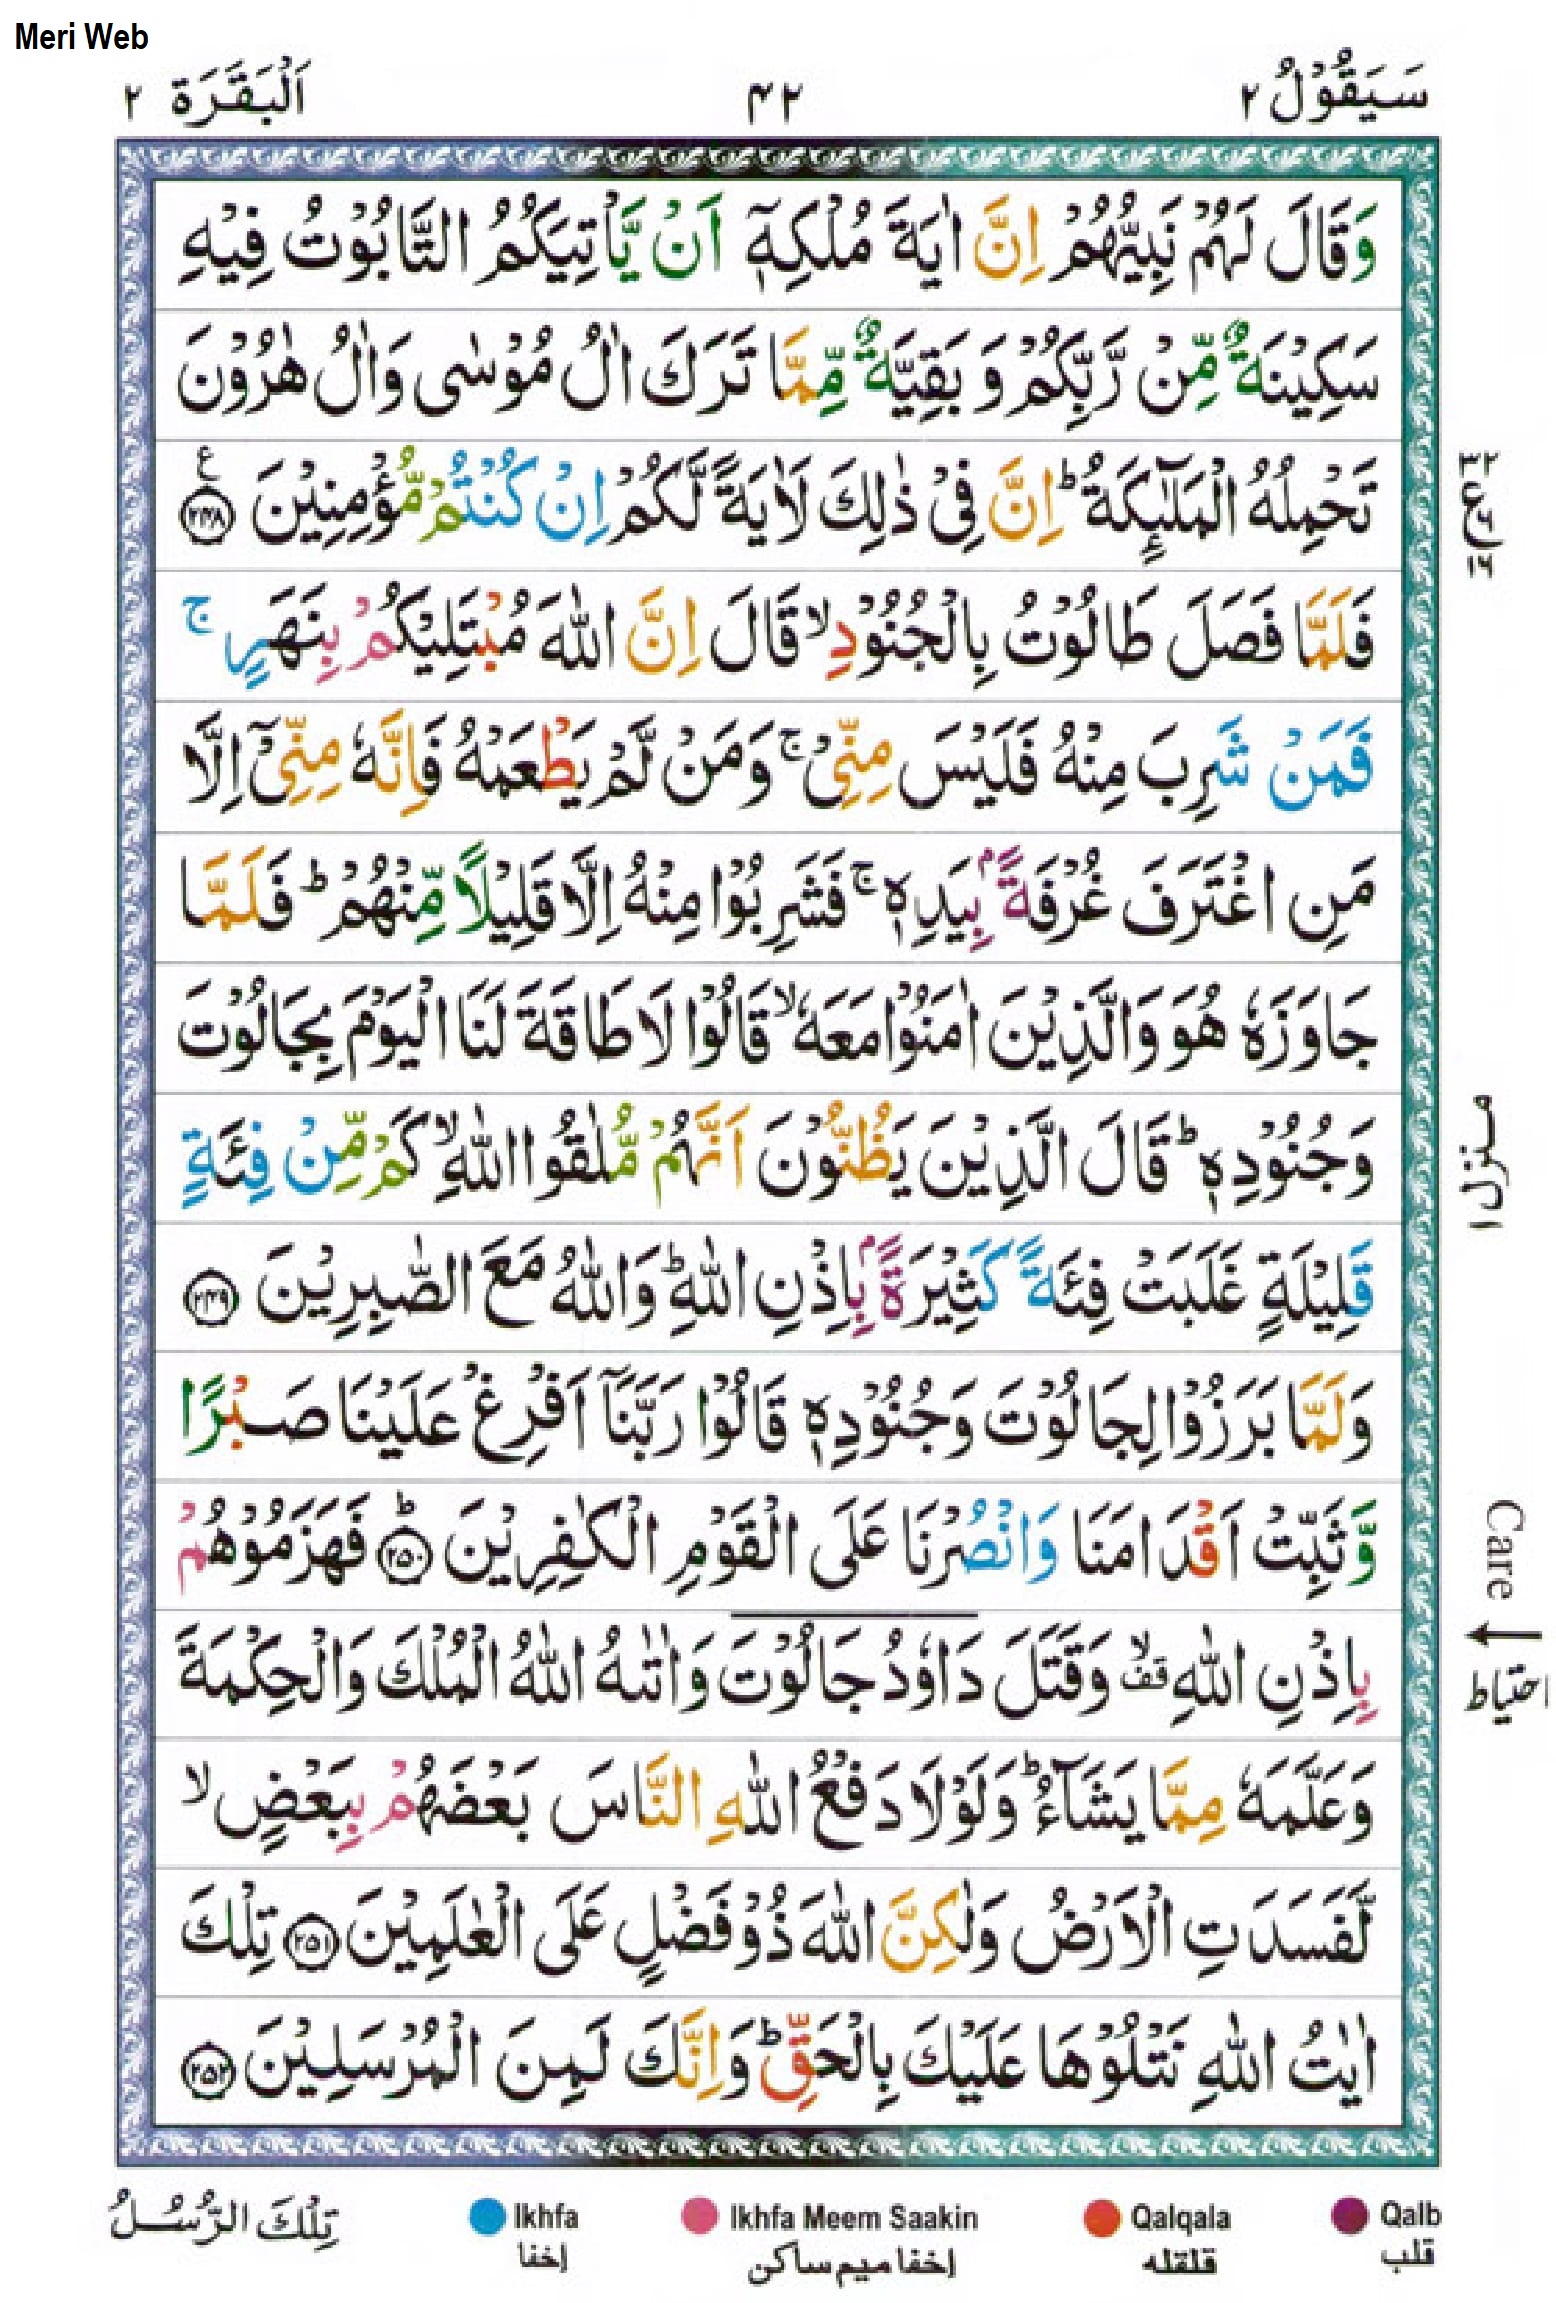 Meri Web
سَيَقُوْلُ ٢
۴۲
اَلْبَقَرَة ٢
وَقَالَ لَهُمْ نَبِيُّهُمْ اِنَّ اٰيَةَ مُلْكِهٖۤ اَنْ يَّاْتِيَكُمُ التَّابُوْتُ فِيْهِ
سَكِيْنَةٌ مِّنْ رَّبِّكُمْ وَ بَقِيَّةٌ مِّمَّا تَرَكَ اٰلُ مُوْسٰى وَاٰلُ هٰرُوْنَ
تَحْمِلُهُ الْمَلٰٓئِكَةُ ؕ اِنَّ فِىْ ذٰلِكَ لَاٰيَةً لَّكُمْ اِنْ كُنْتُمْ مُّؤْمِنِيْنَ ﴿۲۴۸﴾ ع
فَلَمَّا فَصَلَ طَالُوْتُ بِالْجُنُوْدِ ۙ قَالَ اِنَّ اللّٰهَ مُبْتَلِيْكُمْ بِنَهَرٍ ۚ
فَمَنْ شَرِبَ مِنْهُ فَلَيْسَ مِنِّىْ ۚ وَمَنْ لَّمْ يَطْعَمْهُ فَاِنَّهٗ مِنِّىْۤ اِلَّا
مَنِ اغْتَرَفَ غُرْفَةًۢ بِيَدِهٖ ۚ فَشَرِبُوْا مِنْهُ اِلَّا قَلِيْلًا مِّنْهُمْ ؕ فَلَمَّا
جَاوَزَهٗ هُوَ وَالَّذِيْنَ اٰمَنُوْا مَعَهٗ ۙ قَالُوْا لَا طَاقَةَ لَنَا الْيَوْمَ بِجَالُوْتَ
وَجُنُوْدِهٖ ؕ قَالَ الَّذِيْنَ يَظُنُّوْنَ اَنَّهُمْ مُّلٰقُوا اللّٰهِ ۙ كَمْ مِّنْ فِئَةٍ
قَلِيْلَةٍ غَلَبَتْ فِئَةً كَثِيْرَةًۢ بِاِذْنِ اللّٰهِ ؕ وَاللّٰهُ مَعَ الصّٰبِرِيْنَ ﴿۲۴۹﴾
وَلَمَّا بَرَزُوْا لِجَالُوْتَ وَجُنُوْدِهٖ قَالُوْا رَبَّنَاۤ اَفْرِغْ عَلَيْنَا صَبْرًا
وَّثَبِّتْ اَقْدَامَنَا وَانْصُرْنَا عَلَى الْقَوْمِ الْكٰفِرِيْنَ ﴿۲۵۰﴾ؕ فَهَزَمُوْهُمْ
بِاِذْنِ اللّٰهِ ۙ قف وَقَتَلَ دَاوٗدُ جَالُوْتَ وَاٰتٰٮهُ اللّٰهُ الْمُلْكَ وَالْحِكْمَةَ
وَعَلَّمَهٗ مِمَّا يَشَآءُ ؕ وَلَوْلَا دَفْعُ اللّٰهِ النَّاسَ بَعْضَهُمْ بِبَعْضٍ ۙ
لَّفَسَدَتِ الْاَرْضُ وَلٰكِنَّ اللّٰهَ ذُوْ فَضْلٍ عَلَى الْعٰلَمِيْنَ ﴿۲۵۱﴾ تِلْكَ
اٰيٰتُ اللّٰهِ نَتْلُوْهَا عَلَيْكَ بِالْحَقِّ ؕ وَاِنَّكَ لَمِنَ الْمُرْسَلِيْنَ ﴿۲۵۲﴾
۳۲
ع
منزل ۱
Care
احتیاط
تِلْكَ الرُّسُلُ
Ikhfa
إخفا
Ikhfa Meem Saakin
إخفا ميم ساكن
Qalqala
قلقله
Qalb
قلب